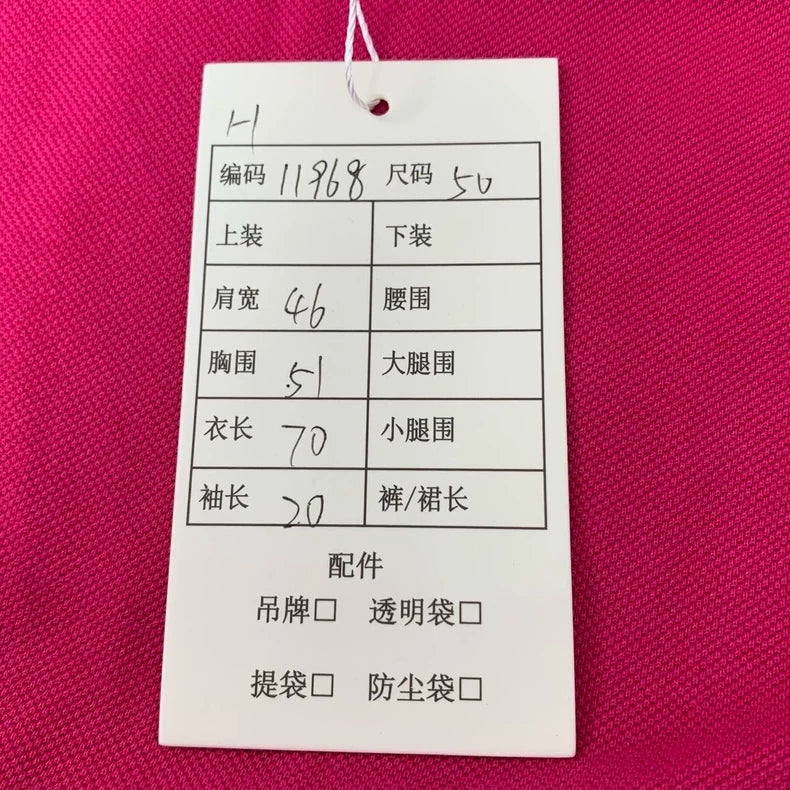 H
编码 11968 尺码 50
上装 下装
肩宽 46 腰围
胸围 51 大腿围
衣长 70 小腿围
袖长 20 裤/裙长
配件
吊牌□ 透明袋□
提袋□ 防尘袋□